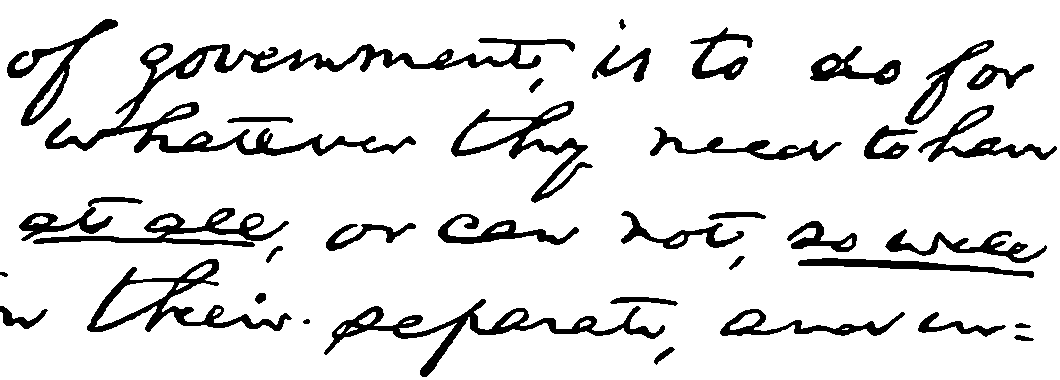 of government, is to do for
whatever they need to have
at all, or can not, so well
in their separate, and in=